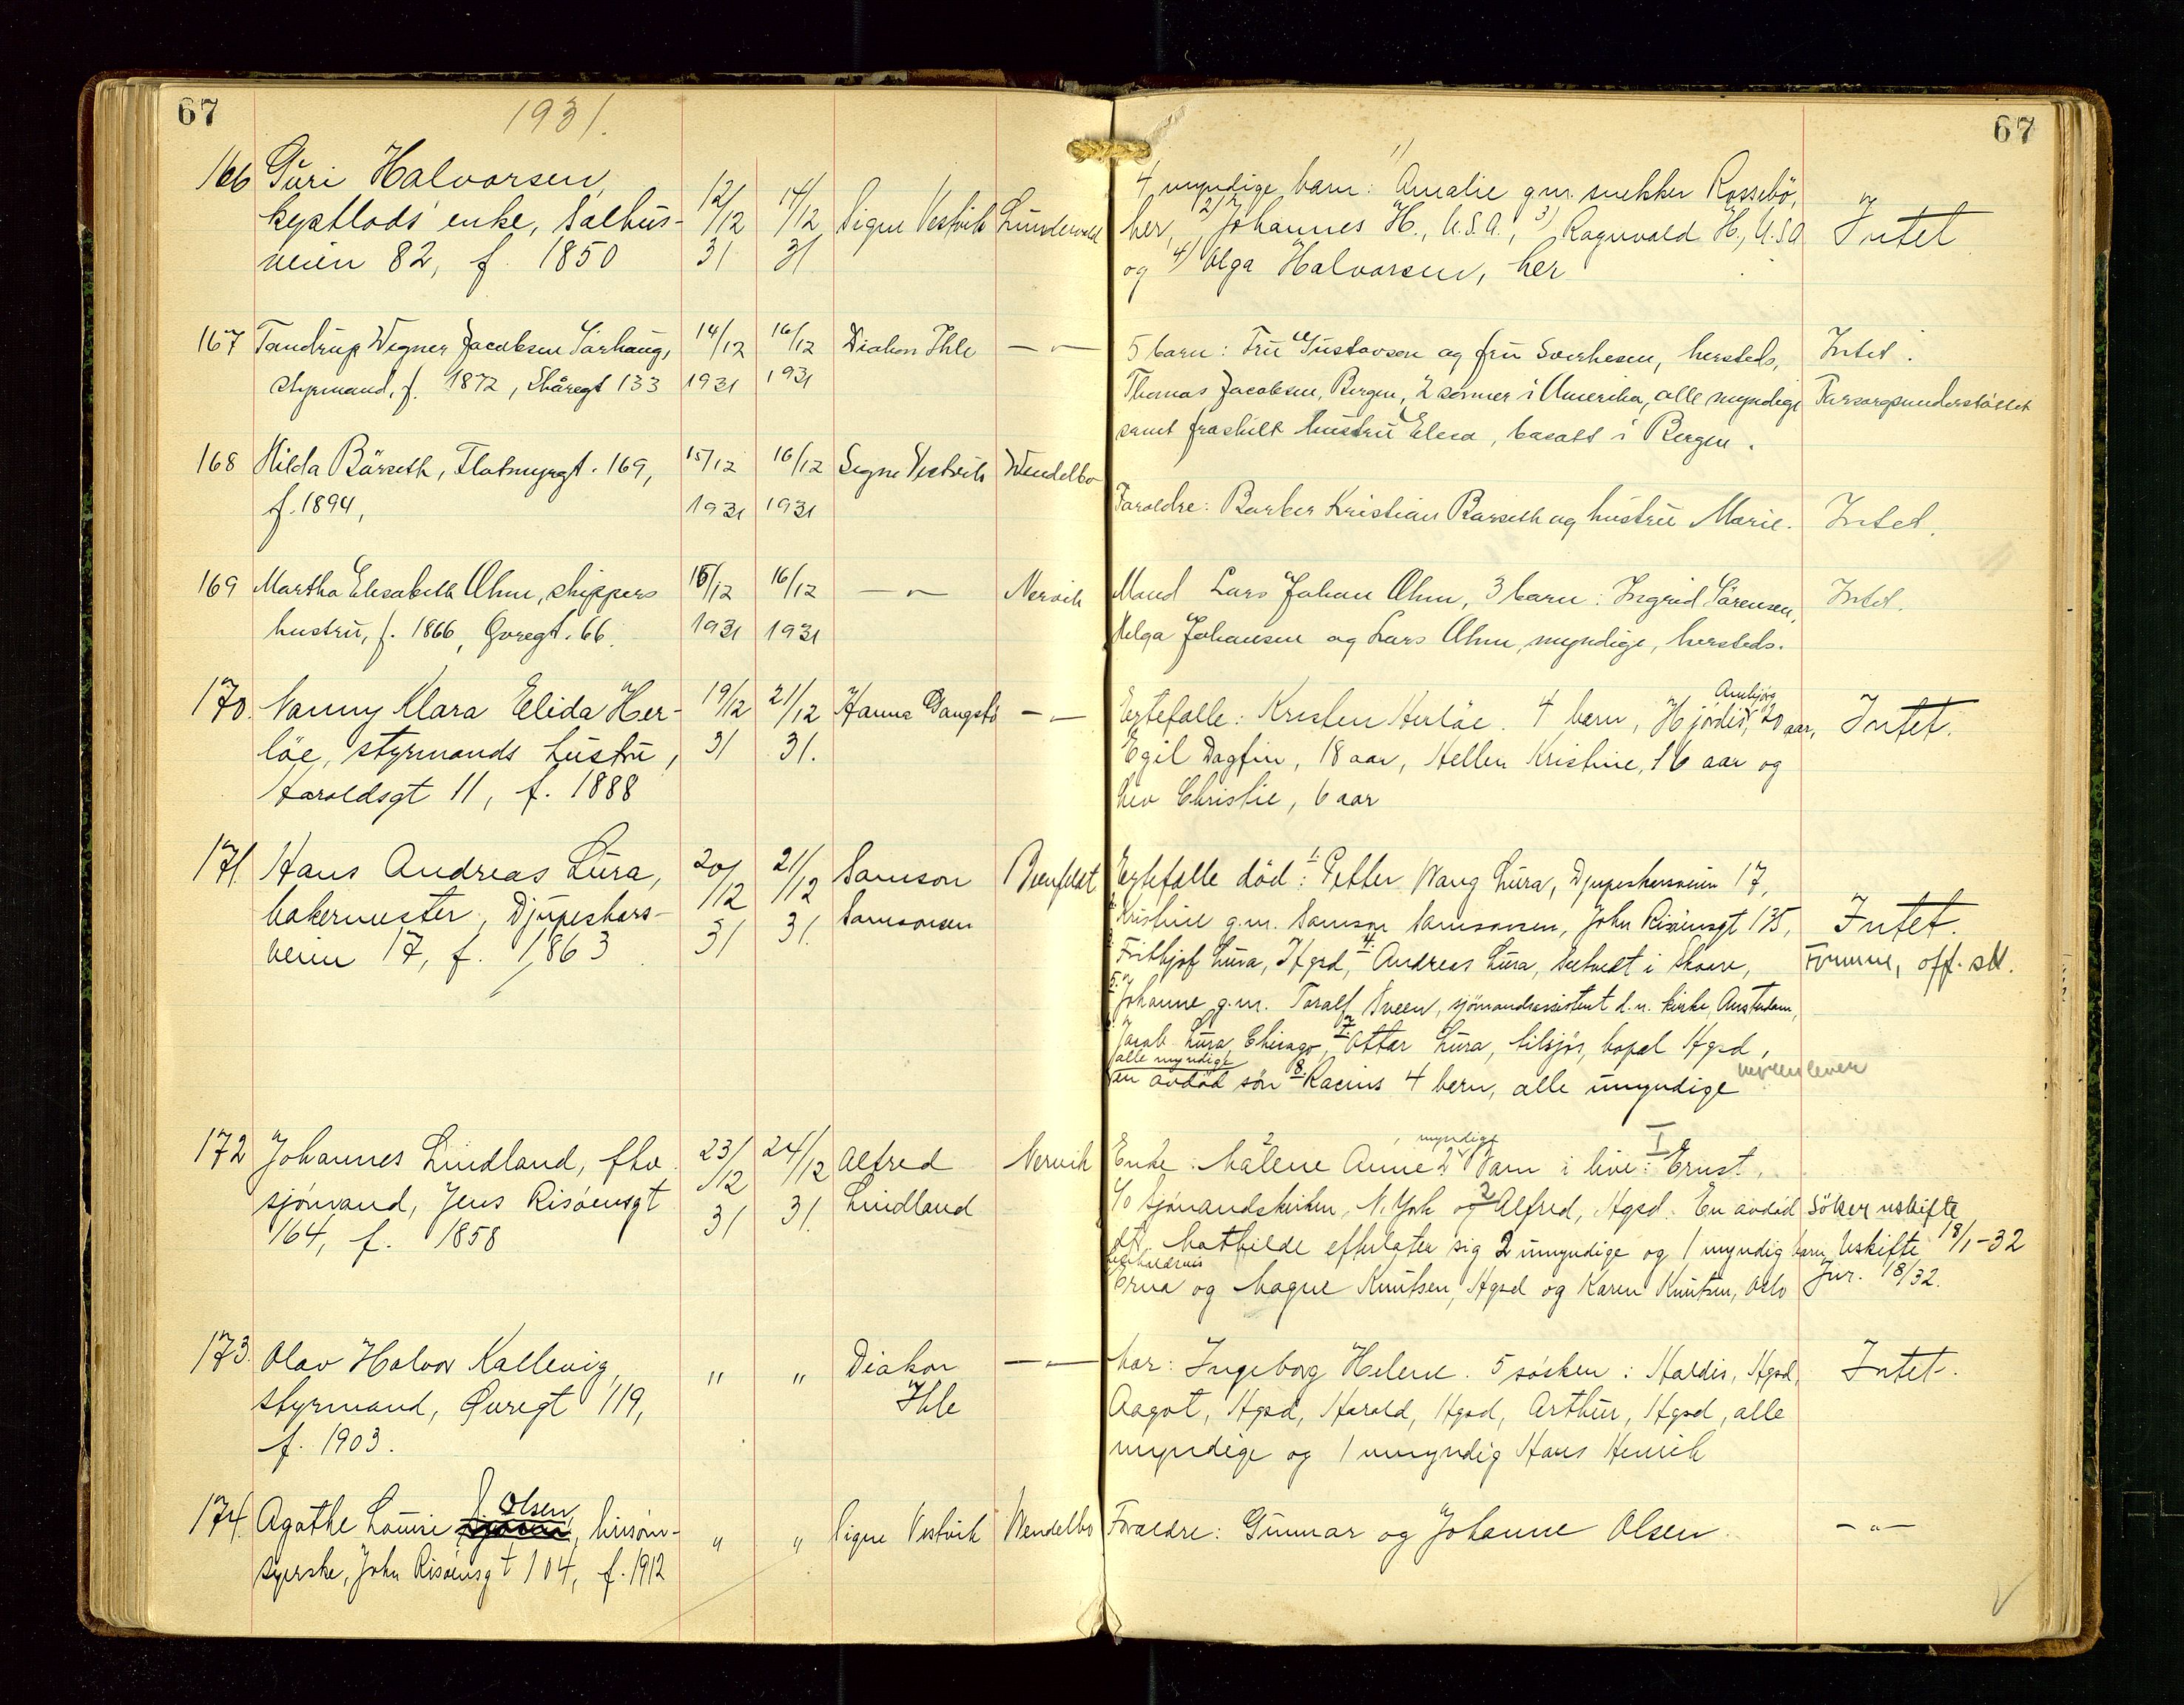 67
1931.
67
166 Guri Halvorsen, 12/12 31 14/12 31 Signe Vestvik Lundewald
kystlods enke, Salhus-
veien 82, f. 1850
4 myndige barn: 1) Amalie g.m. snekker Rossebö,
her, 2) Johannes H., U.S.A., 3) Ragnvald H., U.S.A
og 4) Olga Halvorsen, her
Intet
167 Tandrup Wegner Jacobsen Sörhaug, 14/12 1931 16/12 1931 Diakon Ihle — " —
styrmand, f. 1872, Skåregt 133
5 barn: Fru Gustavson og fru Sverhesen, hersteds,
Thomas Jacobsen, Bergen, 2 sønner i Amerika, alle myndige
samt fraskilt hustru Elesa, bosatt i Bergen.
Intet.
Forsorgsunderstöttet
168 Hilda Bårseth, Flotmyrgt. 169, 15/12 1931 16/12 1931 Signe Vestvik Wendelbo
f. 1894,
Foroldre: Barber Kristian Barseth og hustru Marie.
Intet.
169 Martha Elesabeth Ohm, skippers 15/12 1931 16/12 1931 — " — Nervik
hustru, f. 1866, Qvregt. 66.
Mand Lars Johan Ohm, 3 barn: Ingrid Sörensen,
Helga Johansen og Lars Ohm, myndige, hersteds.
Intet.
170. Nanny Klara Elida Her- 19/12 31 21/12 31. Hanna Gangstö — " —
löe, styrmands hustru,
Haroldsgt 11, f. 1888
Ektefalle: Kristen Herlöe. 4 barn, Hjördis Ambjörg, 20 aar,
Egil Dagfin, 18 aar, Hellen Kristine, 16 aar og
Liv Christie, 6 aar
Intet.
171. Hans Andreas Lura, 20/12 31 21/12 31. Samson Samsonsen Bienfeldt
bakermester, Djupeskars-
veien 17, f. 1863
Ektefalle död: 1. Petter Wang Lura, Djupeskarsveien 17,
Kristine g.m. Samson Samsonsen, John Risöensgt 135,
Fritbjof Lura, Hgsd, 4. Andreas Lura, Setvedt i Skaare,
5. Johanne g.m. Toralf Sveen, sjömandsassistent d.n. kirke, Amsterdam,
Jacob Lura Chicago, 7. Ottar Lura, tilsjös, bopal Hgsd,
alle myndige
en avdöd sön 8. Racius 4 barn, alle umyndige
Intet.
Formue, off. sk.
172 Johannes Lindland, fhv. 23/12 31 24/12 31. Alfred Lindland Nervik
sjömand, Jens Risöensgt
164, f. 1858
Enke Malene Anne 2 myndige barn i live: I Ernst,
c/o Sjömandskirken, N. York og 2 Alfred, Hgsd. En avdöd
dt. Mathilde efterlater sig 2 umyndige og 1 myndig barn,
Erna og Magne Knutsen, Hgsd og Karen Knutsen, Oslo
Söker uskifte
Uskifte 18/1-32
Jnr. 18/32.
173. Olav Halvor Kallevig, " " Diakon Ihle — " —
styrmand, Qvregt 119,
f. 1903.
Mor: Ingeborg Helene. 5 søsken: Haldis, Hgsd,
Aagot, Hgsd, Harald, Hgsd, Arthur, Hgsd, alle
myndige og 1 umyndig Hans Henrik
Intet.
174. Agathe Louise Olsen, linsöm- " " Signe Vestvik Wendelbo
syerske, John Risöensgt 104, f. 1912
Foraldre: Gunnar og Johanne Olsen.
— " —